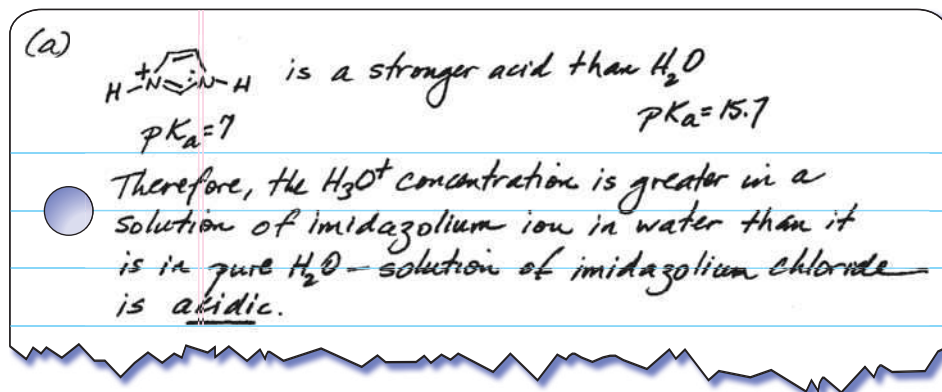 (a)
H-N+ N-H is a stronger acid than H₂O
pKa=7 pKa=15.7
Therefore, the H₃O⁺ concentration is greater in a
solution of imidazolium ion in water than it
is in pure H₂O – solution of imidazolium chloride
is acidic.